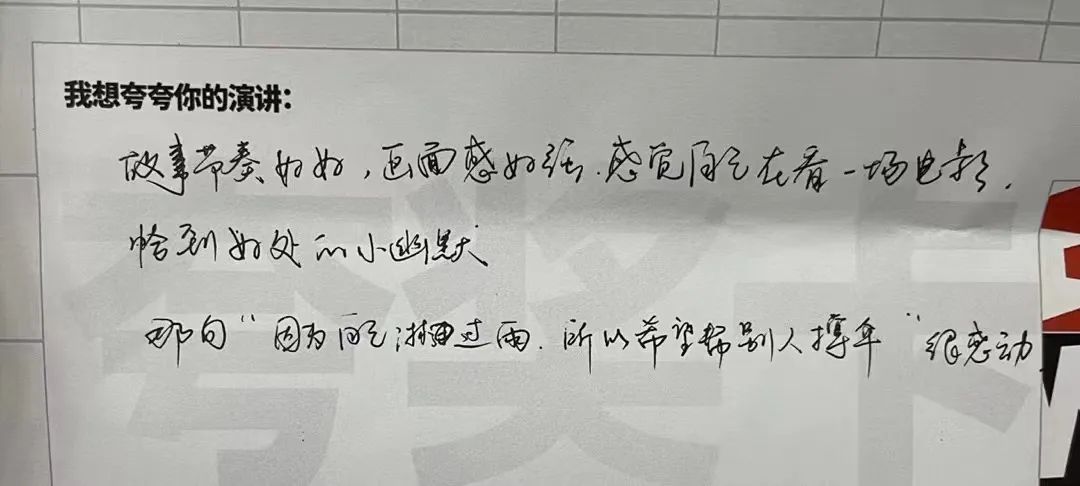 我想夸夸你的演讲：
故事节奏好好，画面感好强.感觉陪在看一场电影.
恰到好处的小幽默
那句“因为淋过雨.所以希望帮别人撑伞”很感动
夸奖卡